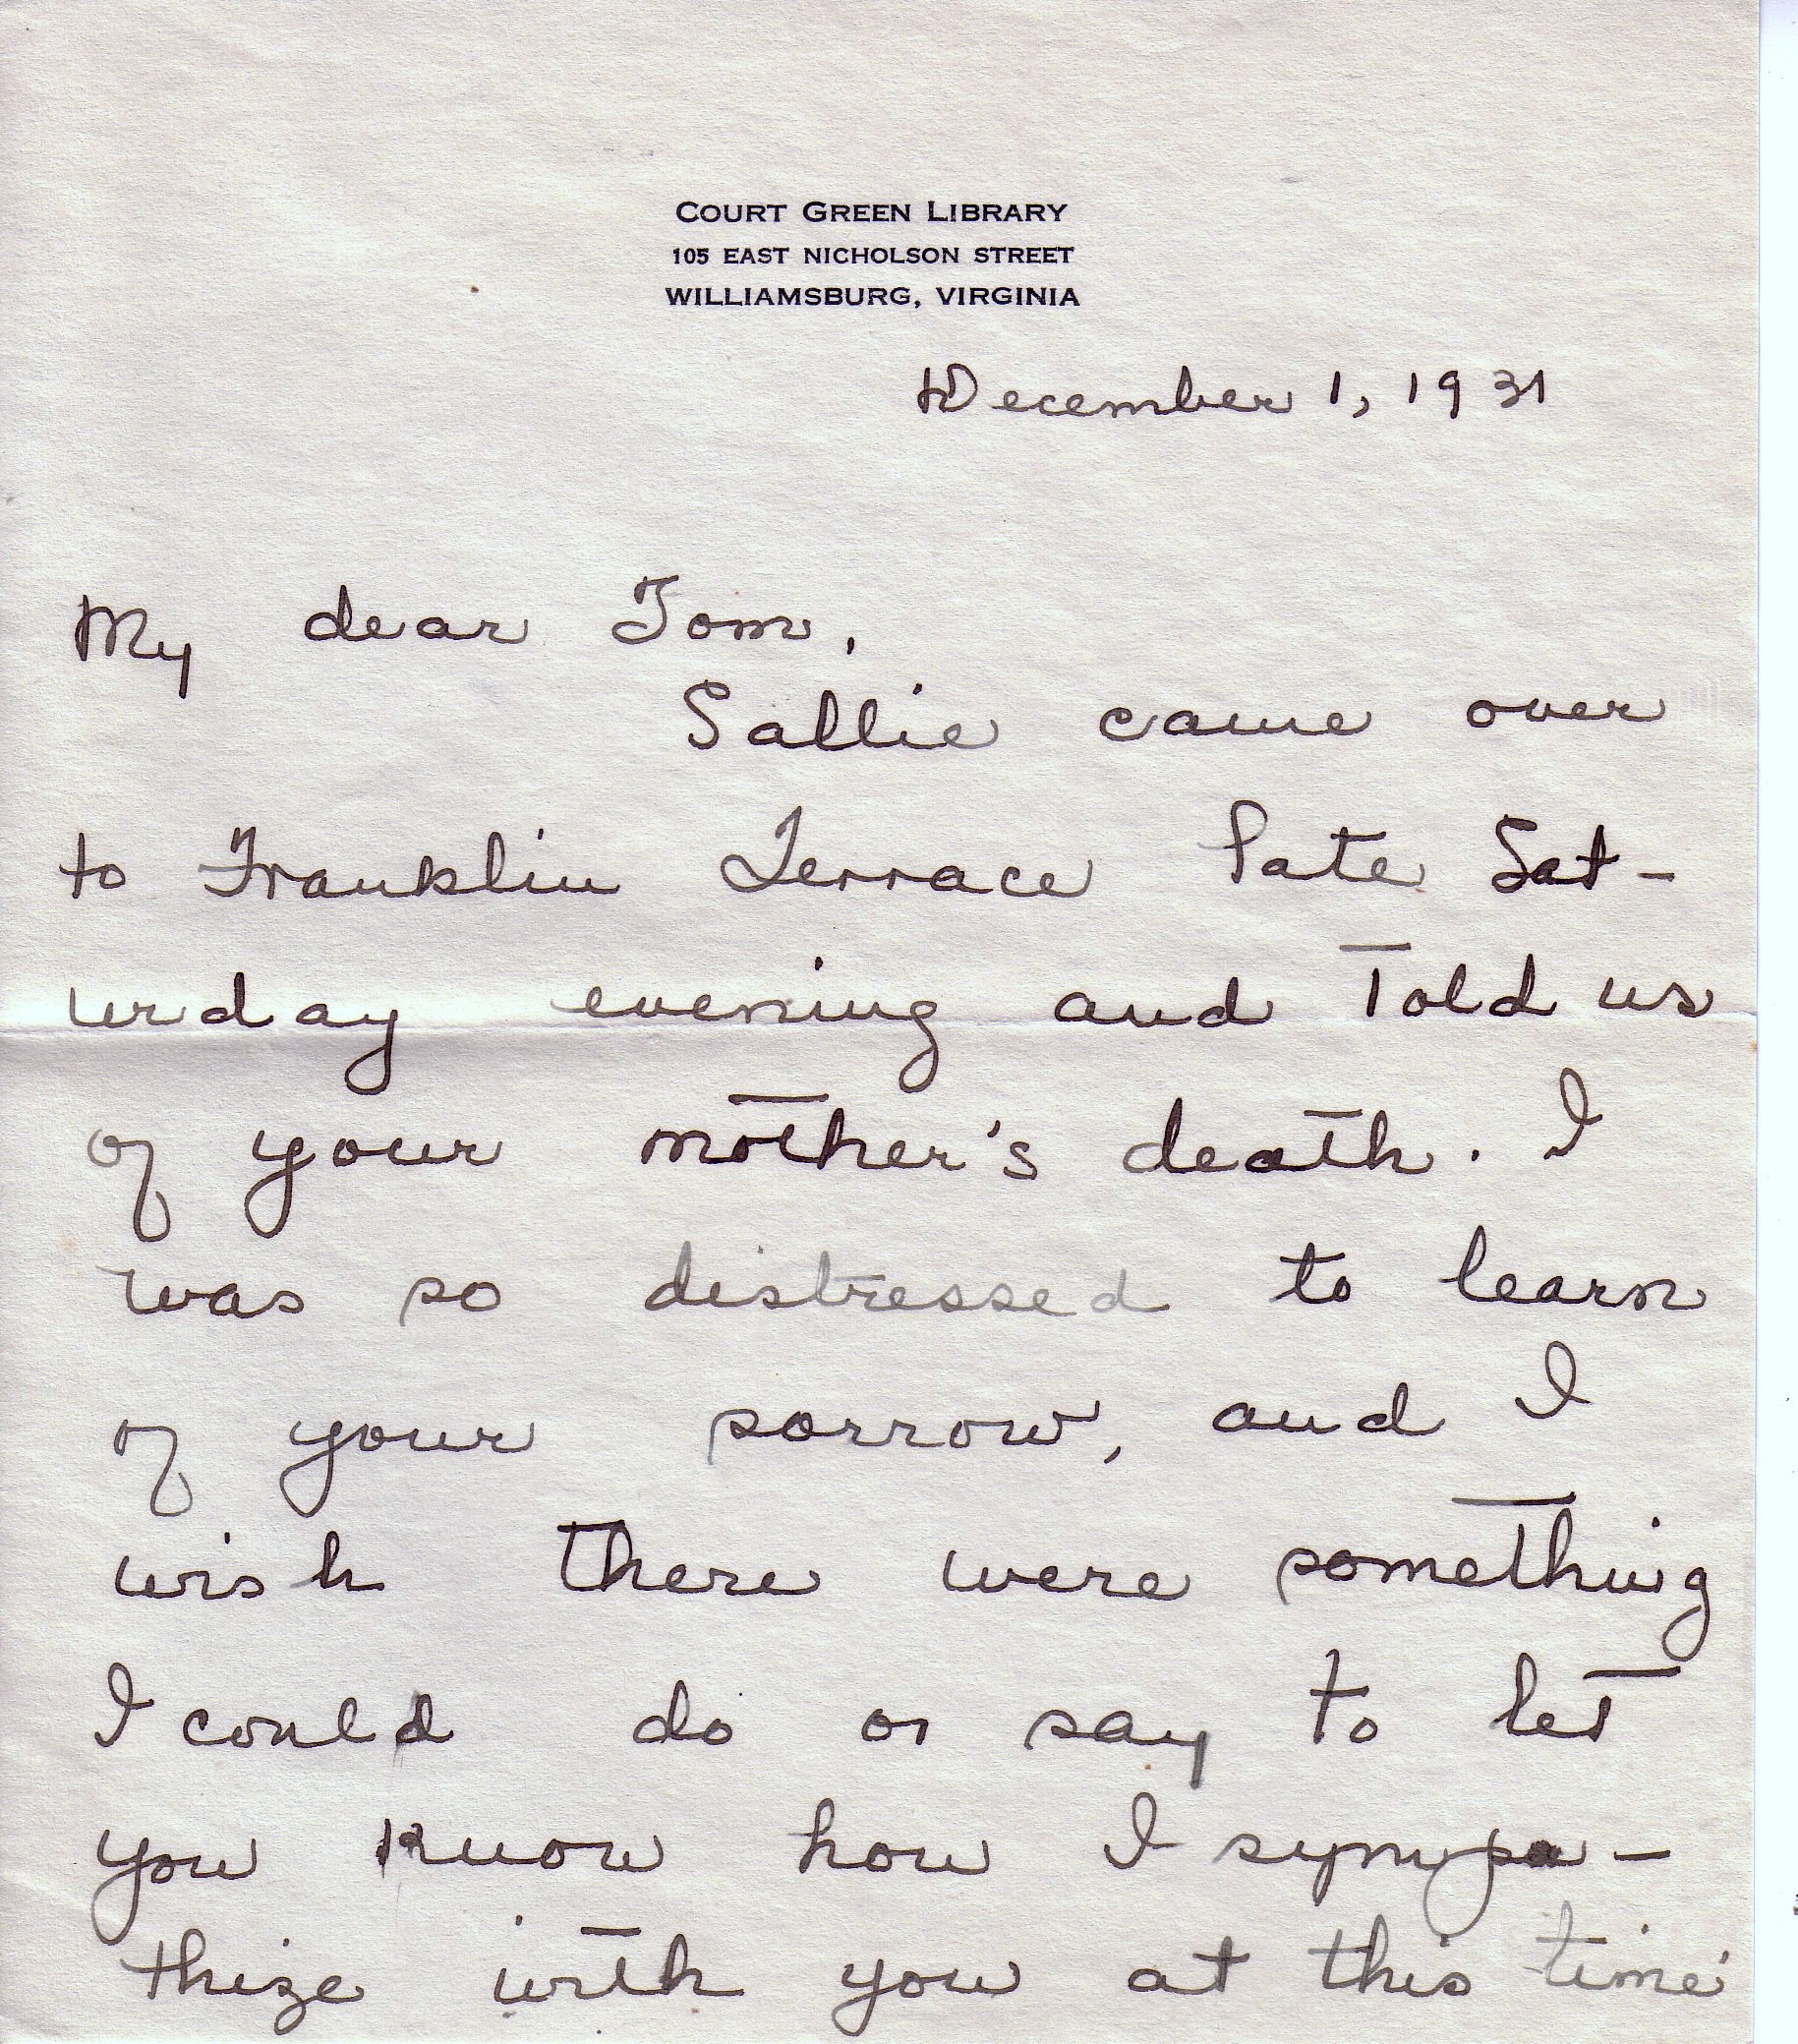 COURT GREEN LIBRARY
105 EAST NICHOLSON STREET
WILLIAMSBURG, VIRGINIA
December 1, 1931
My dear Tom,
Sallie came over
to Franklin Terrace late Sat-
urday evening and told us
of your mother's death. I
was so distressed to learn
of your sorrow, and I
wish there were something
I could do or say to let
you know how I sympa-
thize with you at this time